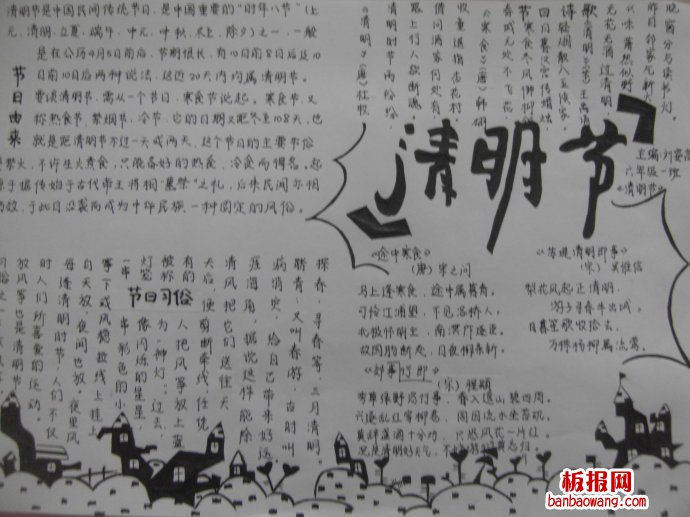 清明节是中国民间传统节日，是中国重要的"时年八节"（上
元、清明、立夏、端午、中元、中秋、冬至、除夕）之一，一般
是在公历4月5日前后，节期很长，有10日前8日后及10
日前10日后两种说法，这近20天内均属清明节。
要谈清明节，需从一个节日，寒食节说起。寒食节，又
称熟食节、禁烟节、冷节，它的日期，又距冬至108天，也
就是距清明节不过一天或两天。这个节日的主要节俗
禁火，不许生火煮食，只能备好的熟食、冷食而得名。
据传始于古代帝王将相"墓祭"之礼，后来民间亦相
仿效，于此日沿袭而成为中华民族一种固定的风俗。
节日由来
清明节
主编：刘
六年级一班
《清明节》
昨日邻家
兴味萧然似野
无花无酒过清明
《清明》（宋）王禹
诗歌
轻烟散入五侯家
日暮汉宫传蜡烛
寒食东风御柳斜
春城无处不飞花
《寒食》（唐）韩翃
牧童遥指杏花村
借问酒家何处有
路上行人欲断魂
清明时节雨纷纷
《清明》（唐）杜牧
《途中寒食》
（唐）宋之问
马上逢寒食，途中属暮春。
可怜江浦望，不见洛桥人。
北极怀明主，南溟作逐臣。
故园肠断处，日夜柳条新。
《苏堤清明即事》
（宋）吴惟信
梨花风起正清明，
游子寻春半出城。
日暮笙歌收拾去，
万株杨柳属流莺。
《郊事行即》
（宋）程颢
芳草绿野恣行事，春入遥山碧四周。
兴逐乱红穿柳巷，困因流水坐苔矶。
莫辞盏酒十分劝，只恐风花一片红。
况是清明好天气，不妨游衍莫忘归。
节日习俗
探春、寻春等。三月清明，
踏青：又叫春游，古时叫
病消灾，给自己带来好运
涯海角，据说这样能除
清风把它们送往天
天后，便剪断牵线，任凭
有的人把风筝放上蓝
被称为"神灯"。过去，
灯笼像闪烁的星星，
一串串彩色的小
等下或风稳拉线上挂上
白天放，夜间也放。夜里风
每逢清明时节，人们不仅
时人们所喜爱的运动。
放风筝也是清明节
板报网
banbaowang.com